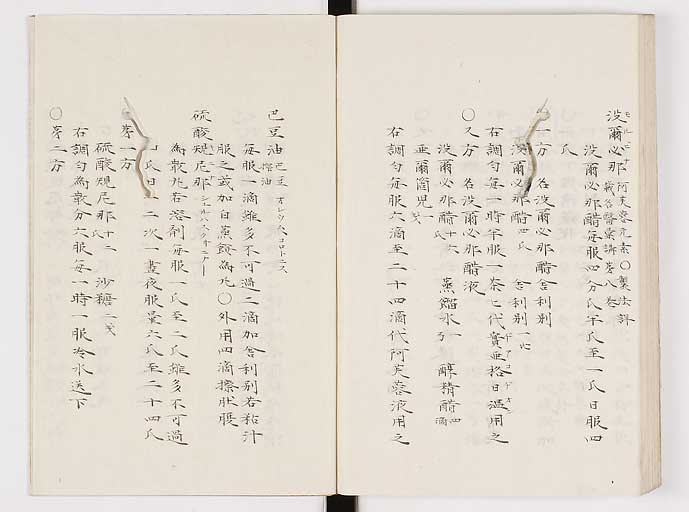 没爾必那 阿芙蓉元素〇製法詳
没爾必那醋每服四分氏半氏至一氏日服四
氏
一方 名没爾必那醋舍利别
没爾必那醋四氏 舍利别一
右調匀每一時半服一茶匕代實亜格日澁用之
〇又方 名没爾必那醋液
没爾必那醋十六氏 蒸餾水 醇精醋四滴
亜爾箇児一
右調匀每服六滴至二十四滴代阿芙蓉液用之
巴豆油 巴豆搾油
每服一滴雖多不可過二滴加舍利别若粘汁
服之或加白蒸餅為丸〇外用四滴擦肚腰
硫酸規尼那
為散丸若溶剤每服一氏至二氏雖多不可過
氏日二次一晝夜服量六氏至二十四氏
〇第一方
硫酸規尼那十二氏 沙糖二
右調匀為散分六服每一時一服冷水送下
〇第二方